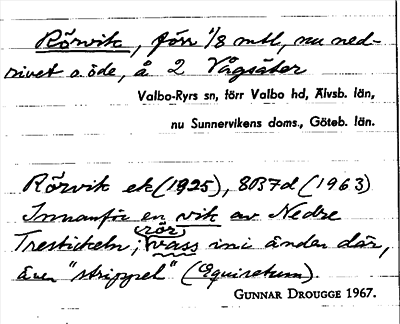 Rörvik, förr 1/8 mtl, nu ned-
rivet o. öde, å 2 Vågsäter
Valbo-Ryrs sn, förr Valbo hd, Älvsb. län,
nu Sunnervikens doms., Göteb. län.
Rörvik ek (1925), 8B7d (1963)
Innanför en vik av Nedre
Trestickeln; vass (rör) ini ändan där,
även "strippel" (Equisetum).
GUNNAR DROUGGE 1967.